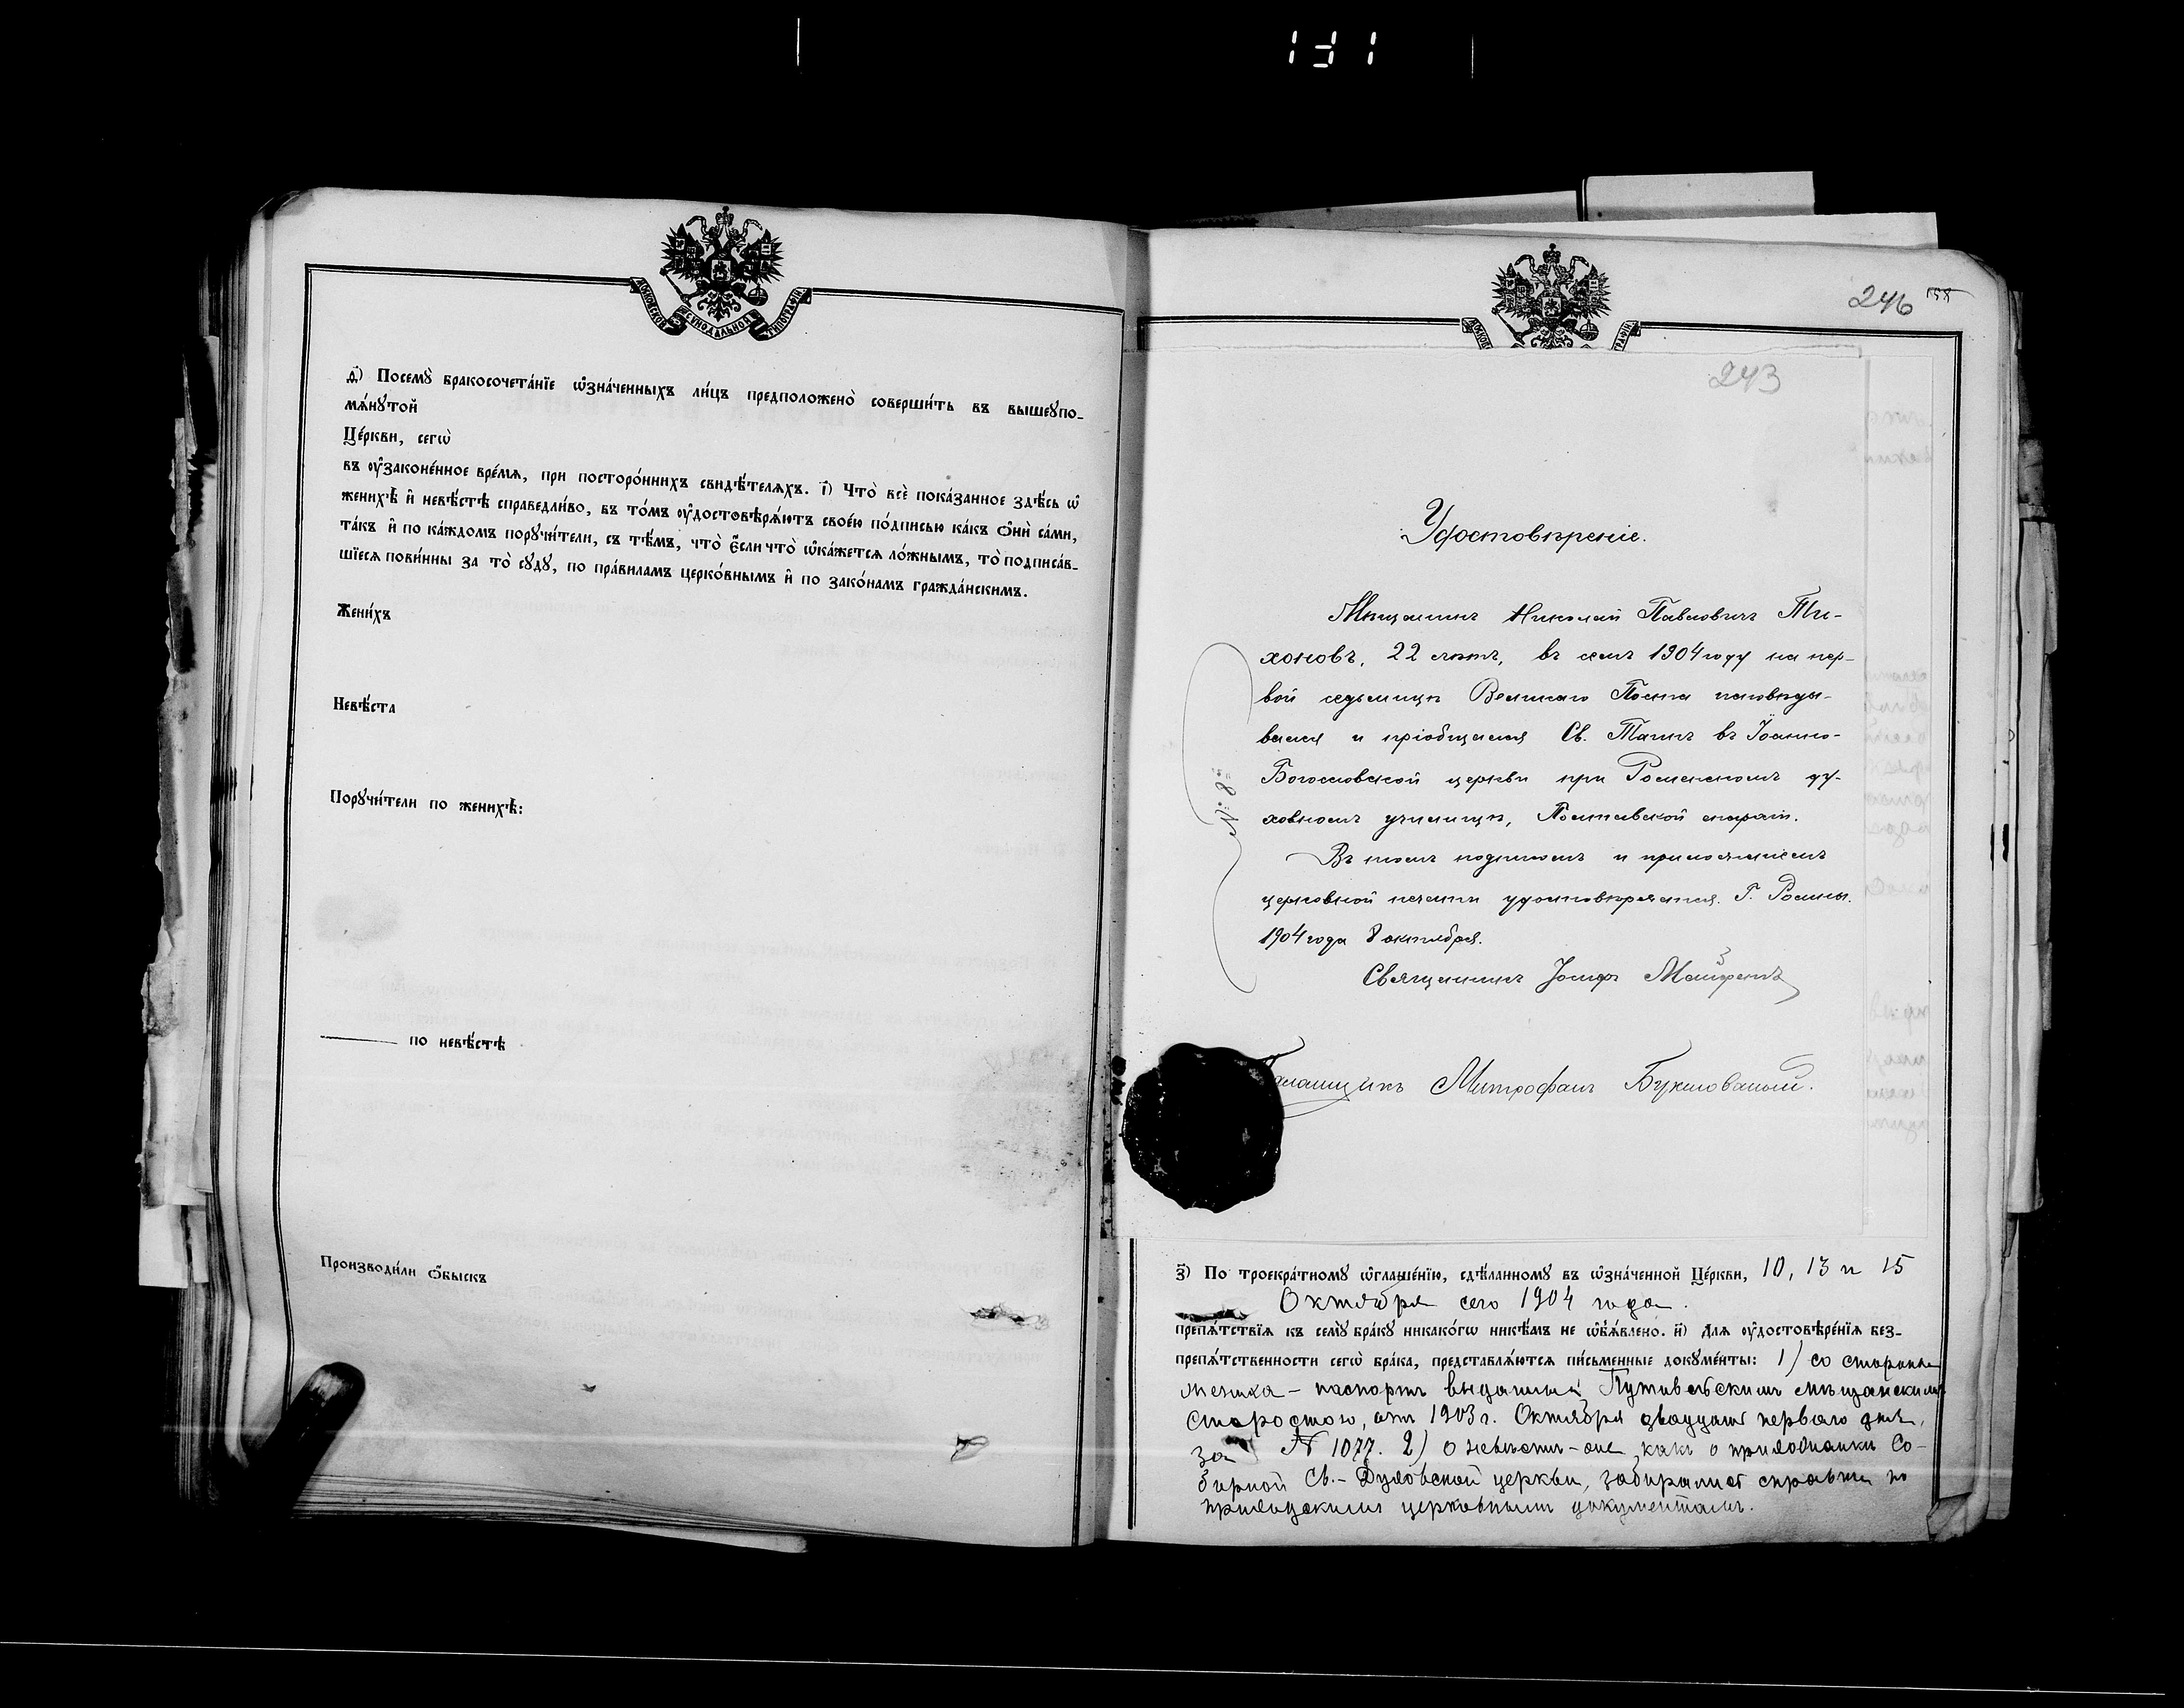 131
МОСКОВСКОЙ СѴНОДАЛЬНОЙ ТИПОГРАФІИ
д҃) Посемꙋ̀ бракосочета́нїе ѡ҆зна́ченныхъ ли́цъ предположено̀ соверши́ть въ вышеꙋпо-
мѧ́нꙋтой
Це́ркви, сегѡ̀
въ ᲂу҆законе́нное вре́мѧ, при посторо́ннихъ свидѣ́телѧхъ. і҃) Что̀ всѐ пока́занное здѣ́сь ѡ҆
женихѣ̀ и҆ невѣ́стѣ справедли́во, въ то́мъ ᲂу҆достовѣрѧ́ютъ свое́ю по́дписью ка́къ ѻ҆нѝ са́ми,
та́къ и҆ по ка́ждомъ порꙋчи́тели, съ тѣ́мъ, что̀ є҆́сли что̀ ѡ҆ка́жетсѧ ло́жнымъ, то̀ подписа́в-
шїесѧ пови́нны за то̀ сꙋдꙋ̀, по пра́виламъ церко́внымъ и҆ по зако́намъ гражда́нскимъ.
Жени́хъ
Невѣ́ста
Порꙋчи́тели по женихѣ̀:
по невѣ́стѣ
Производи́ли ѻ҆́быскъ
246 158
243
Удостовѣреніе.
Мѣщанинъ Николай Павловичъ Ти-
хоновъ, 22 лѣтъ, въ семъ 1904 году на пер-
вой седьмицѣ Великаго Поста исповѣды-
вался и пріобщался Св. Таинъ въ Іоанно-
Богословской церкви при Роменскомъ ду-
ховномъ училищѣ, Полтавской епархіи.
Въ чемъ подписомъ и приложеніемъ
церковной печати удостовѣряется. Г. Ромны.
1904 года 8 октября.
№ 8
Священникъ Іосифъ
Митрофанъ
з҃) По троекра́тномꙋ ѡ҆глаше́нїю, сдѣ́ланномꙋ въ ѡ҆зна́ченной Це́ркви, 10, 13 и 15
Октября сего 1904 года.
препѧ́тствїѧ къ семꙋ̀ бра́кꙋ никако́гѡ никѣ́мъ не ѡ҆б̾ѧ́влено. и҃) Длѧ ᲂу҆достовѣре́нїѧ без-
препѧ́тственности сегѡ̀ бра́ка, представлѧ́ютсѧ пи́сьменные докꙋме́нты: 1) со стороны
жениха – паспортъ выданный Путивльскимъ мѣщанскимъ
Старостою, отъ 1903 г. Октября двадцать перваго дня,
за № 1077. 2) о невѣстѣ – оне, какъ о прихожанки Со-
борной Св.-Духовской церкви, забирались справки по
приходскимъ церковнымъ документамъ.